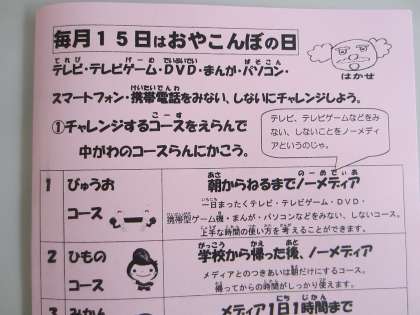 毎月１５日はおやこんぼの日
てれび げーむ でぃぶいでぃ ぱそこん
テレビ・テレビゲーム・ＤＶＤ・まんが・パソコン・
はかせ
けいたいでんわ
スマートフォン・携帯電話をみない、しないにチャレンジしよう。
こーす
①チャレンジするコースをえらんで
中がわのコースらんにかこう。
テレビ、テレビゲームなどをみ
ない、しないことをノーメディ
アというのじゃ。
1 びゅうお
コース
あさ のーめでぃあ
朝からねるまでノーメディア
いちにち
一日まったくテレビ・テレビゲーム・ＤＶＤ・
携帯型ゲーム機・まんが・パソコンなどをみない、しないコース。
上手な時間の使い方を考えることができます。
2 ひもの
コース
がっこう かえ あと
学校から帰った後、ノーメディア
メディアとのつきあいは朝だけにするコース。
帰ってからの時間がしっかり使えます。
3 みかん
にち じかん
メディア1日1時間まで